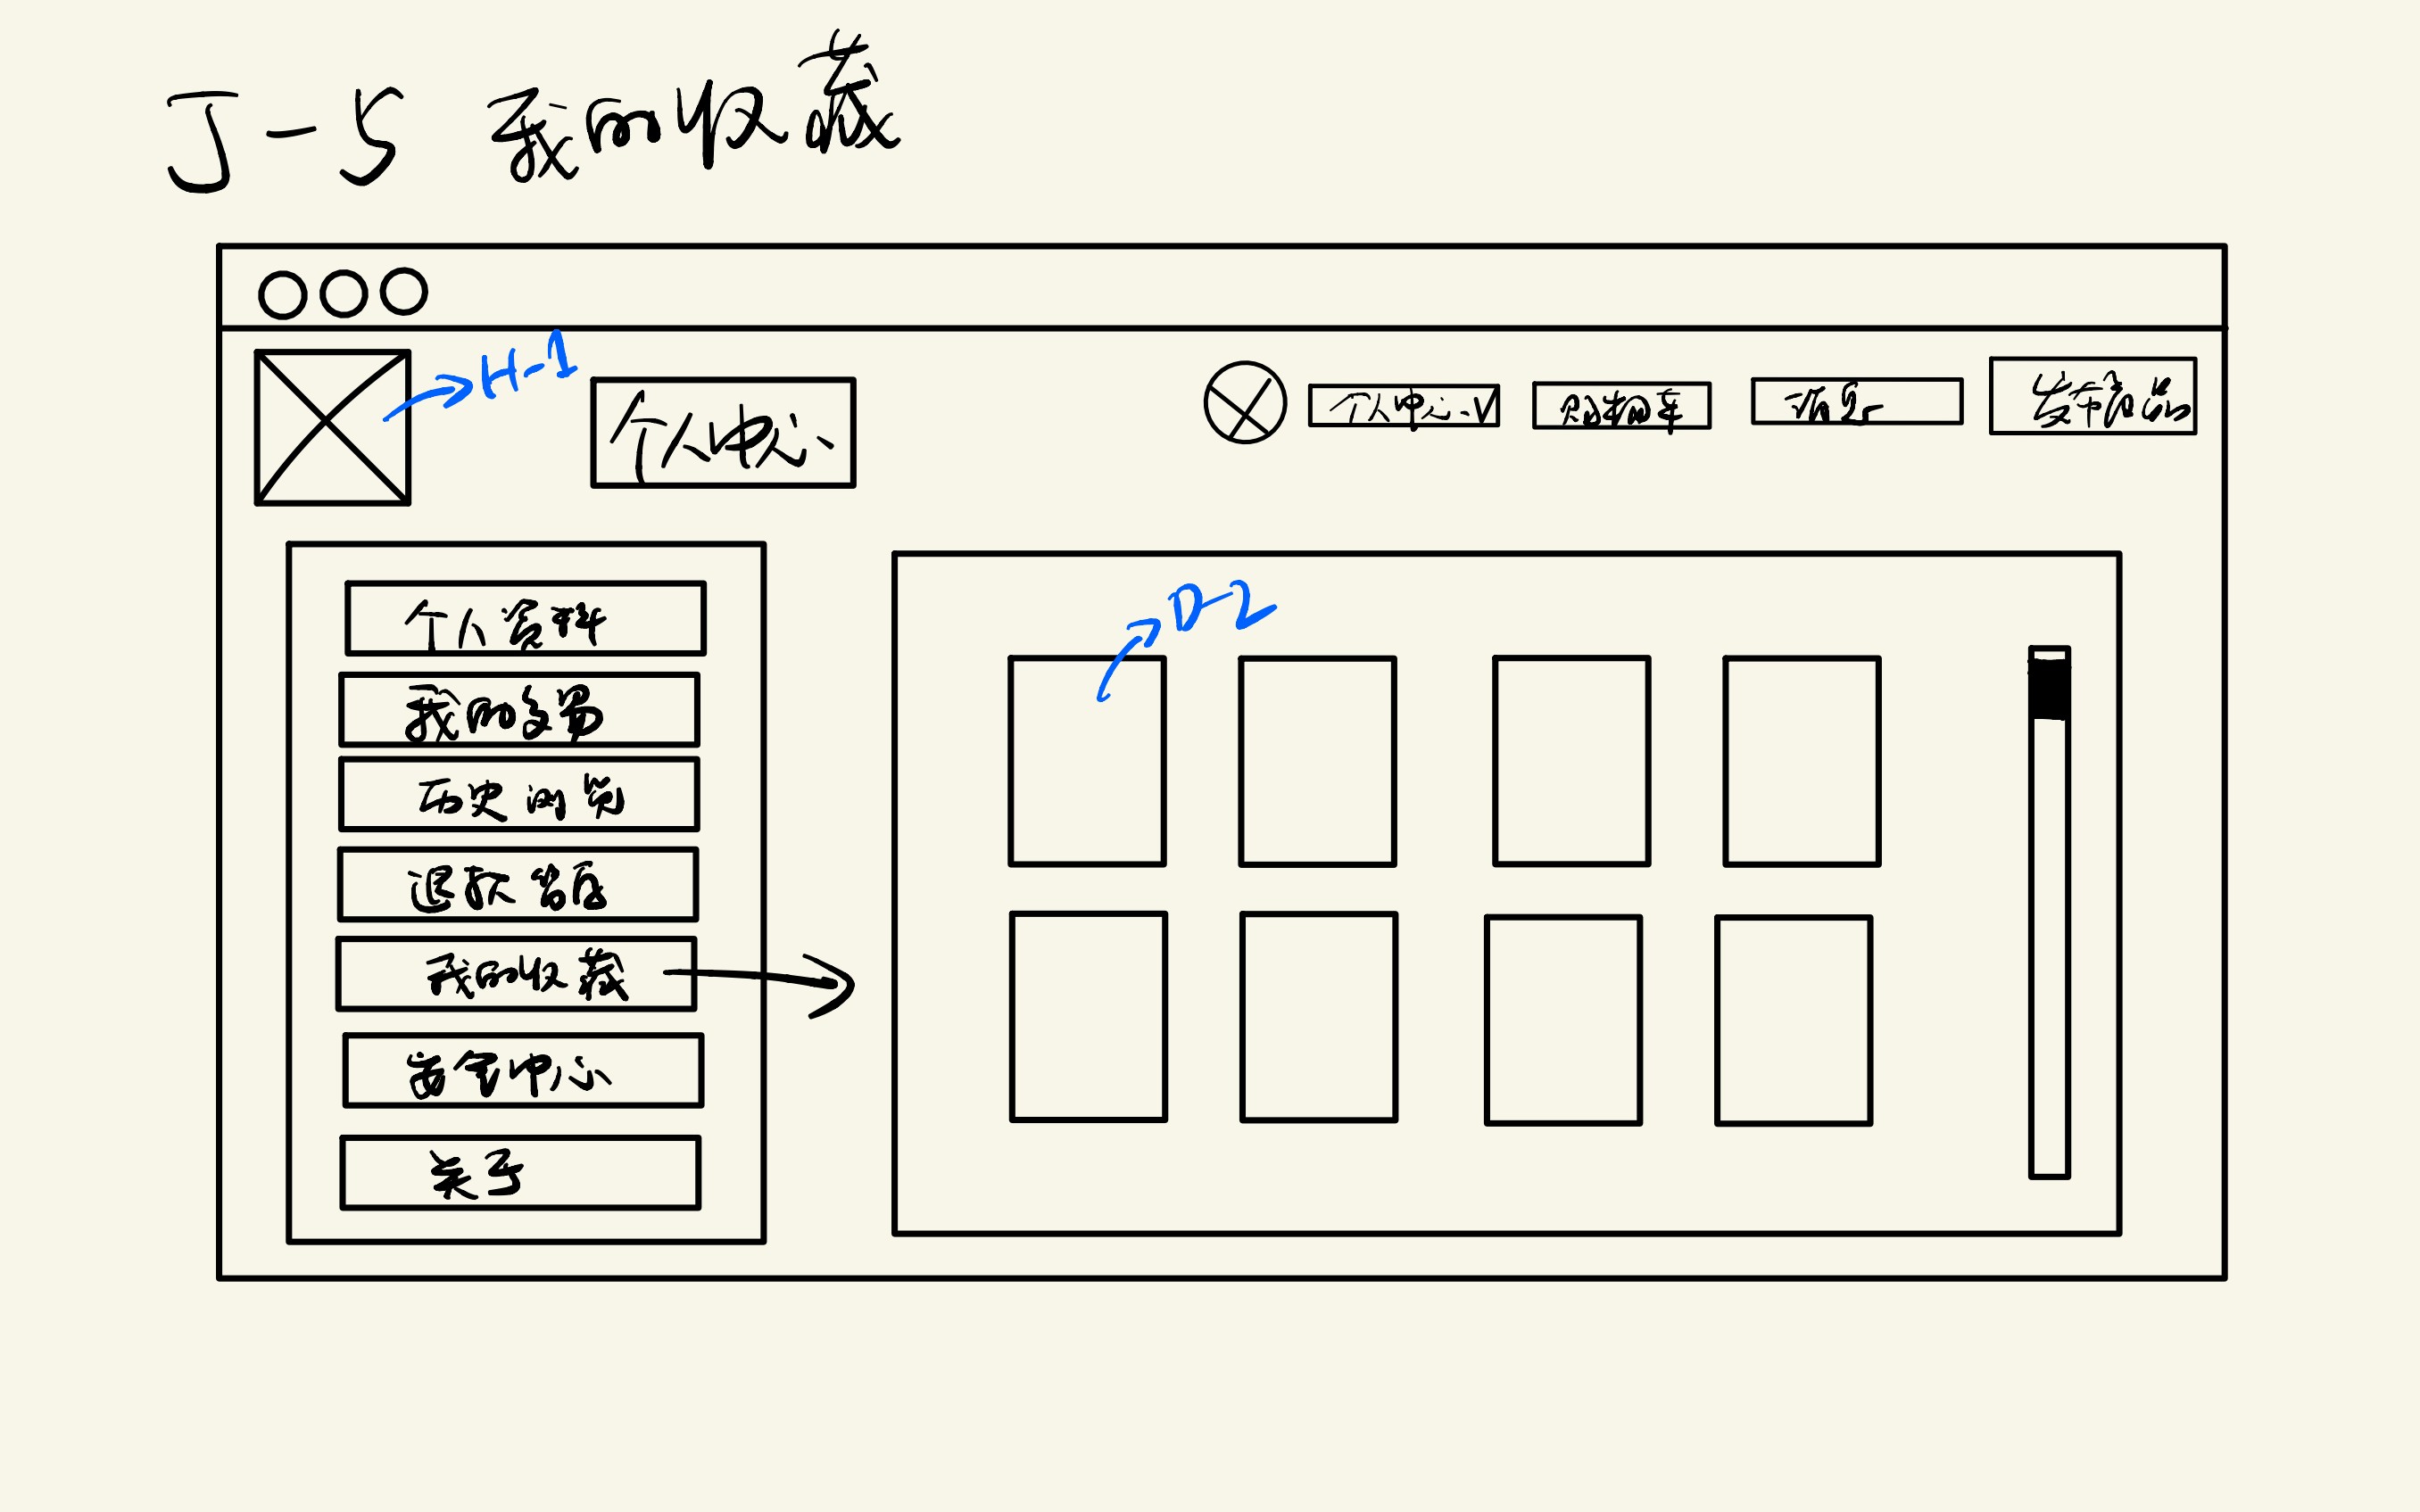 J-5 我的收藏
H-1
个人中心
个人中心
购物车
消息
发布商品
D-2
个人资料
我的交易
历史浏览
退款售后
我的收藏
安全中心
关于